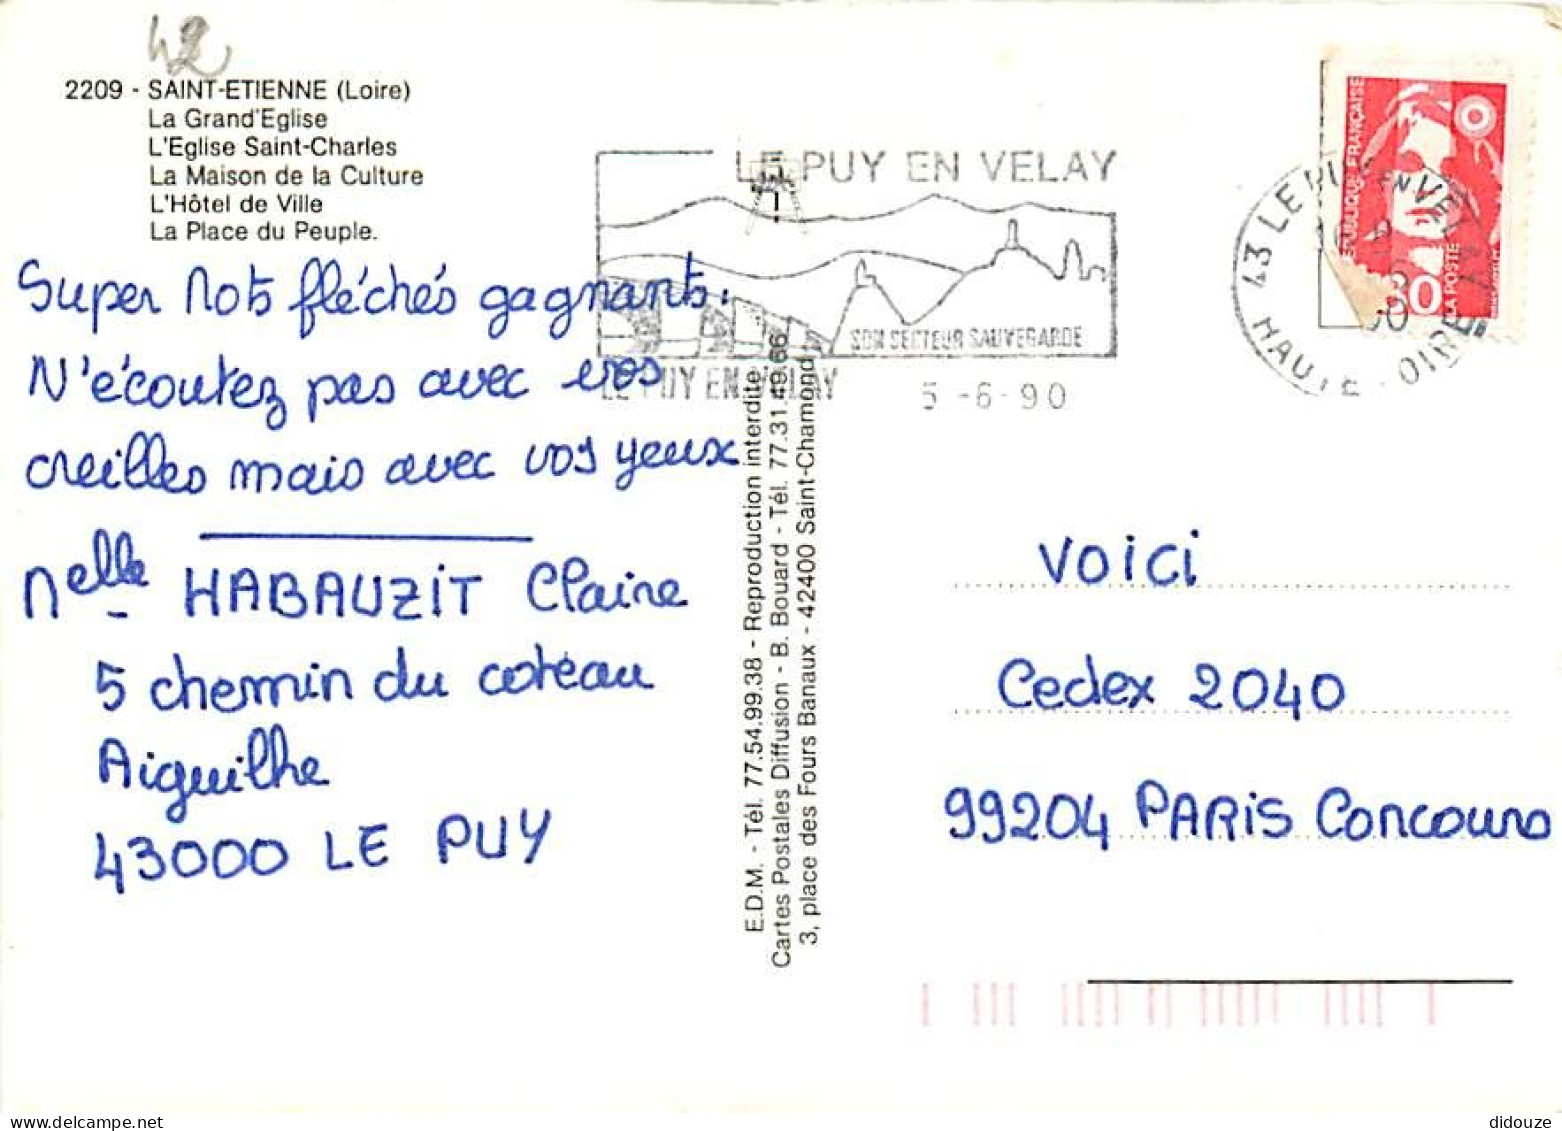 42
2209 - SAINT-ETIENNE (Loire)
La Grand'Eglise
L'Eglise Saint-Charles
La Maison de la Culture
L'Hôtel de Ville
La Place du Peuple.
Super Mots fléchés gagnants.
N'écoutez pas avec vos
oreilles mais avec vos yeux
Melle HABAUZIT Claire
5 chemin du coteau
Aiguilhe
43000 LE PUY
LE PUY EN VELAY
SON SECTEUR SAUVEGARDE
LE PUY EN VELAY
5 -6-90
43 LE PUY EN VELAY
HAUTE-LOIRE
REPUBLIQUE FRANÇAISE
LA POSTE
E.D.M. - Tél. 77.54.99.38 - Reproduction interdite
Cartes Postales Diffusion - B. Bouard - Tél. 77.31.49.66
3, place des Fours Banaux - 42400 Saint-Chamond
VOICI
Cedex 2040
99204 PARIS Concours
didouze